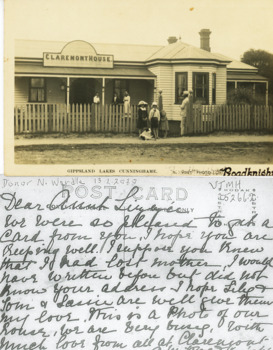 CLAREMONT HOUSE
GIPPSLAND LAKES CUNNINGHAME.
Roadknight
Donor N. Weddle 13.1.2010
POST CARD
ONLY
Dear Aunt
We were so pleased to get a
Card from you, I hope you are
Keeping well. I suppose you Know
that I had lost mother, I would
have written before but did not
know your address I hope Lily &
Tom & are well give them
my love. This is a Photo of our
house, we are very busy, with
much love from all at Claremont